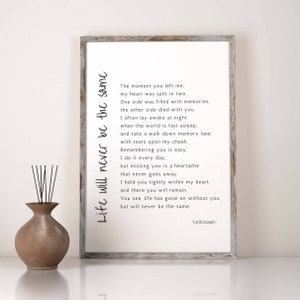 Life will never be the same
The moment you left me,
my heart was split in two.
One side was filled with memories,
the other side died with you.
I often lay awake at night
when the world is fast asleep,
and take a walk down memory lane
with tears upon my cheek.
Remembering you is easy,
I do it every day,
but missing you is a heartache
that never goes away.
I hold you tightly within my heart,
and there you will remain.
You see, life has gone on without you,
but will never be the same.
-Unknown-